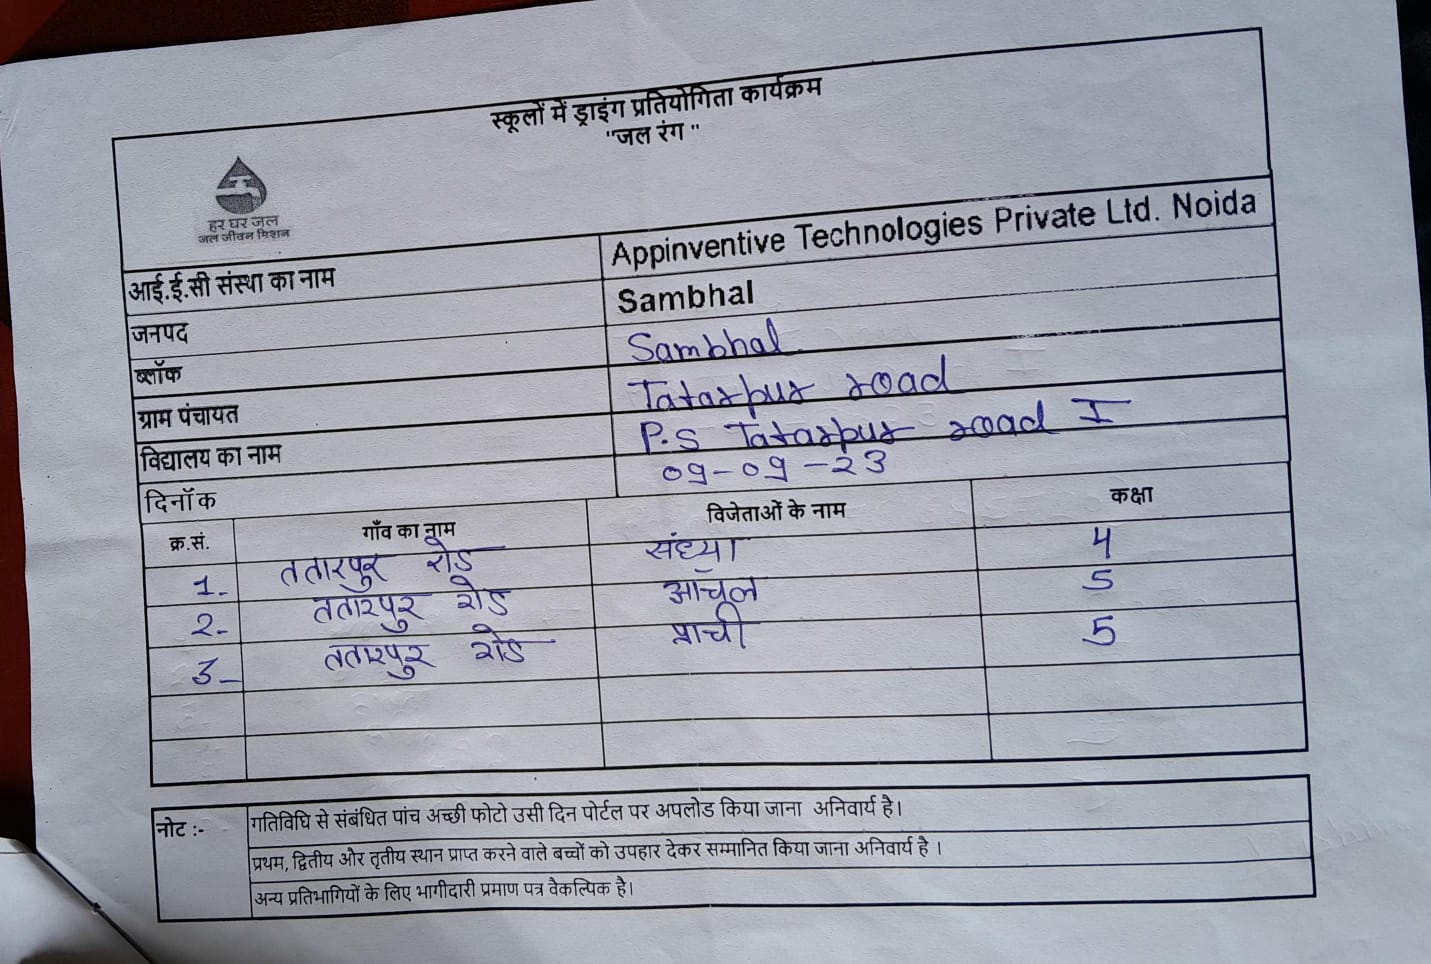 स्कूलों में ड्राइंग प्रतियोगिता कार्यक्रम
"जल रंग "
हर घर जल
जल जीवन मिशन
आई.ई.सी संस्था का नाम Appinventive Technologies Private Ltd. Noida
जनपद Sambhal
ब्लॉक Sambhal
ग्राम पंचायत Tatarpur road
विद्यालय का नाम P.S Tatarpur road I
दिनॉक 09-09-23
क्र.सं. गाँव का नाम विजेताओं के नाम कक्षा
1. ततारपुर रोड संध्या 4
2. ततारपुर रोड आँचल 5
3 ततारपुर रोड प्राची 5
नोट :- गतिविधि से संबंधित पांच अच्छी फोटो उसी दिन पोर्टल पर अपलोड किया जाना अनिवार्य है।
प्रथम, द्वितीय और तृतीय स्थान प्राप्त करने वाले बच्चों को उपहार देकर सम्मानित किया जाना अनिवार्य है ।
अन्य प्रतिभागियों के लिए भागीदारी प्रमाण पत्र वैकल्पिक है।